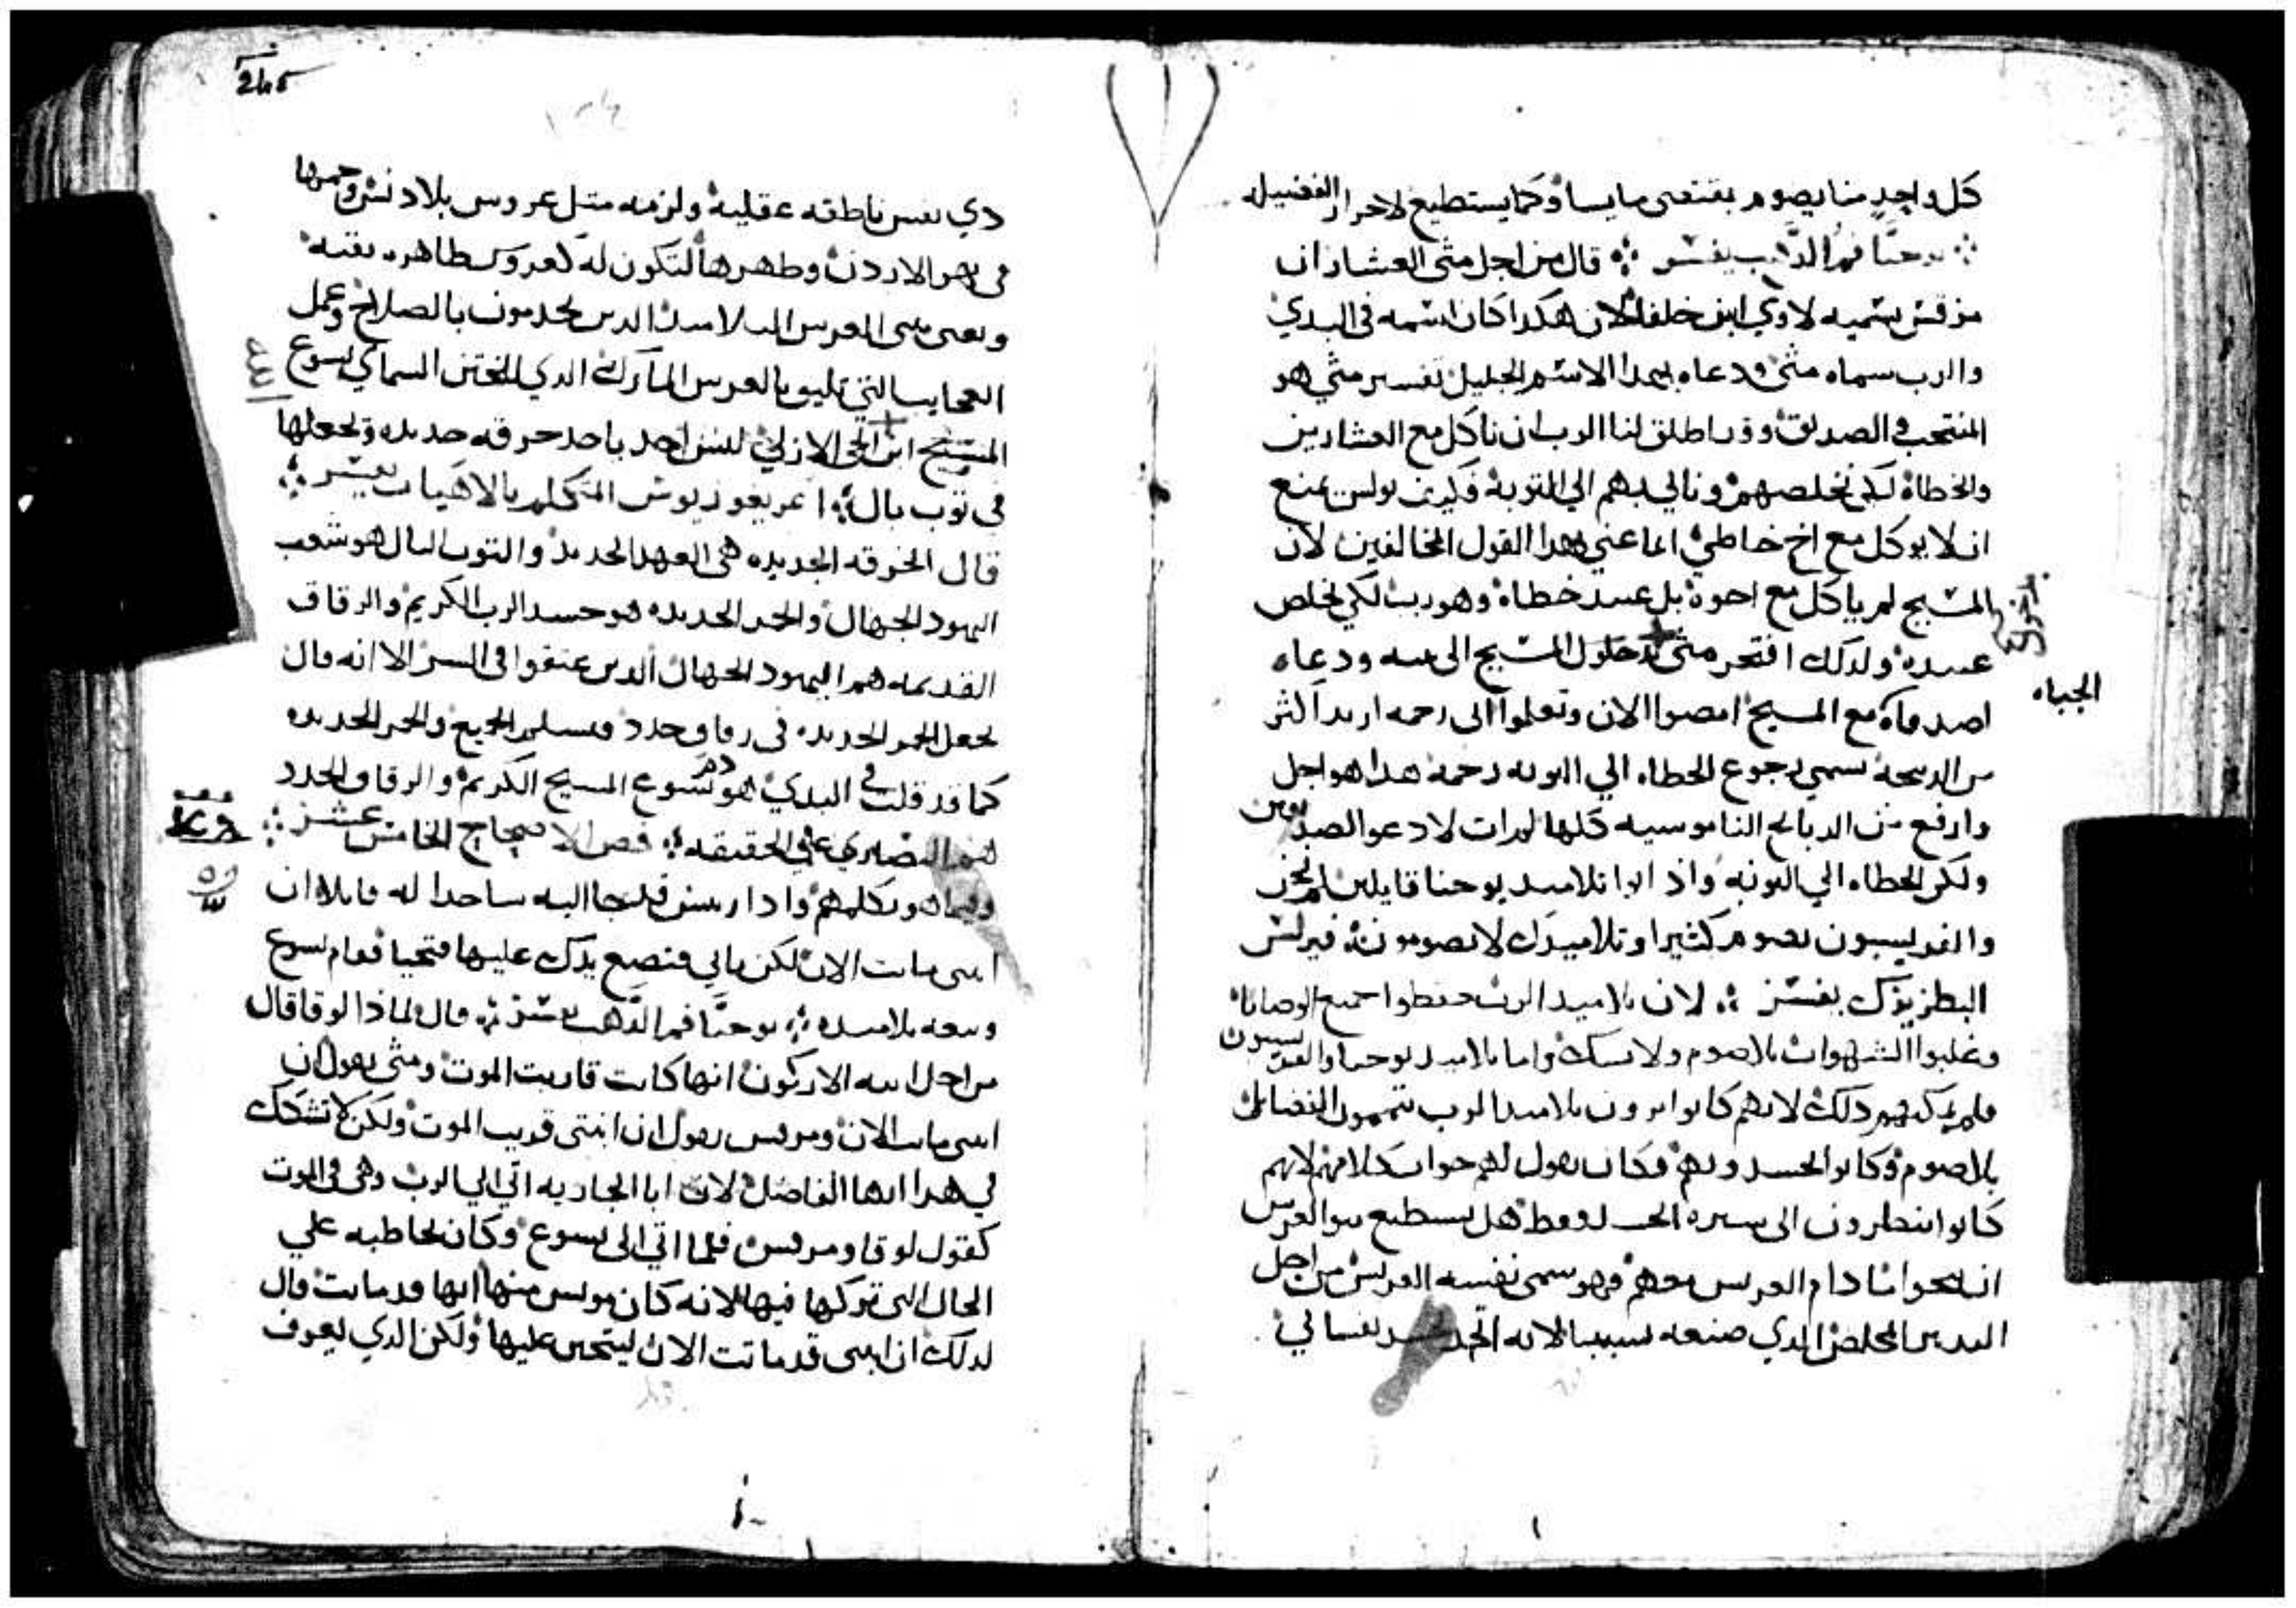 كل واحد منا يصوم بقنعى ما يسا وكما يستطيع لاحرار الفضيله
يوحنا فم الدهب يفسر قال من اجل متى العشار ان
مرقس يسميه لاوي ابن حلفا لان هكدا كان اسمه في البدي
والرب سماه متى ودعاه بهدا الاسم الجليل تفسير متى هو
المنتجب والصديق وقد اطلق لنا الرب ان ناكل مع العشارين
والخطاة لكي نخلصهم وناتي بهم الي التوبة فكيف بولس يمنع
ان لا يوكل مع اخ خاطي انما عني بهدا القول المخالفين لان
المسيح لم ياكل مع اخوة بل عبيد خطاة وهو رب لكي يخلص
عبيده ولدلك افتخر متى بدخول المسيح الى بيته ودعاه
الجباه
اصدقاه مع المسيح امضوا الان وتعلموا انى رحمه اريد اكثر
من الدبيحة يسمي رجوع الخطاه الي التوبه رحمة هدا هو اجل
وارفع من الدبايح الناموسيه كلها لم ات لادعو الصديقين
ولكن الخطاه الي التوبه واذ اتوا تلاميد يوحنا قايلين لم نحن
والفريسيون نصوم كثيرا وتلاميدك لا يصومون كيرلس
البطريرك يفسر لان تلاميد الرب حفظوا جميع الوصايا
وغلبوا الشهوات بلا صوم ولا نسك واما تلاميد يوحنا والفريسيون
فلم يمكنهم دلك لانهم كانوا يرون تلاميد الرب يتممون الفضايل
بلا صوم وكانوا يحسدونهم فكان يقول لهم جواب كلامهم لانهم
كانوا ينظرون الى سيرة الجسد فقط هل يستطيع بنوا العرس
ان ينحوا ما دام العريس معهم فهو سمى نفسه العريس من اجل
التدبير المخلص الدي صنعه بسببنا لانه اتحد بجسد نفساني
245
دي نفس ناطقه عقلية ولزمه متل عروس بلا دنس وحمها
في نهر الاردن وطهرها لتكون له كعروس طاهره نقيه
ويعني بنى العرس التلاميد الدين يخدمون بالصلاح وعمل
العجايب التي تليق بالعرس المبارك الدي للختن السماي يسوع
المسيح ابن الحي الازلي ليس احد ياخد خرقه جديده ويجعلها
في توب بال اغريغوريوس المتكلم بالالاهيات يفسر
قال الخرقه الجديده هى العهد الجديد والتوب البال هو شعب
اليهود الجهال والخمر الجديده هو جسد الرب الكريم والزقاق
القديمه هم اليهود الجهال الدين عتقوا في الشر الا انه قال
يجعل الخمر الجديده في زقاق جدد فيسلم الجميع والخمر الجديده
كما قد قلت في البدي هو دم يسوع المسيح الكريم والزقاق الجدد
هم النصارى على الحقيقه فص الاصحاح الخامس عشر
وفيما هو يكلمهم وادا رييس قد جا اليه ساجدا له قايلا ان
ابنتى ماتت الان لكن تاتي فتضع يدك عليها فتحيا فقام يسوع
وتبعه تلاميده يوحنا فم الدهب يفسر قال لماذا لوقا قال
من اجل ابنه الاركون انها كانت قاربت الموت ومتى يقول ان
ابنتى ماتت الان ومرقس يقول ان ابنتى قريب الموت ولكن لا تشكك
في هدا ايها الفاضل لان ابا الجاريه اتى الي الرب وهى في الموت
كقول لوقا ومرقس فلما اتي الى يسوع وكان يخاطبه على
الحال التى تركها فيها لانه كان مويس منها انها قد ماتت قال
لدلك ان ابنتى قد ماتت الان ليتحنن عليها ولكن الدي يعرف